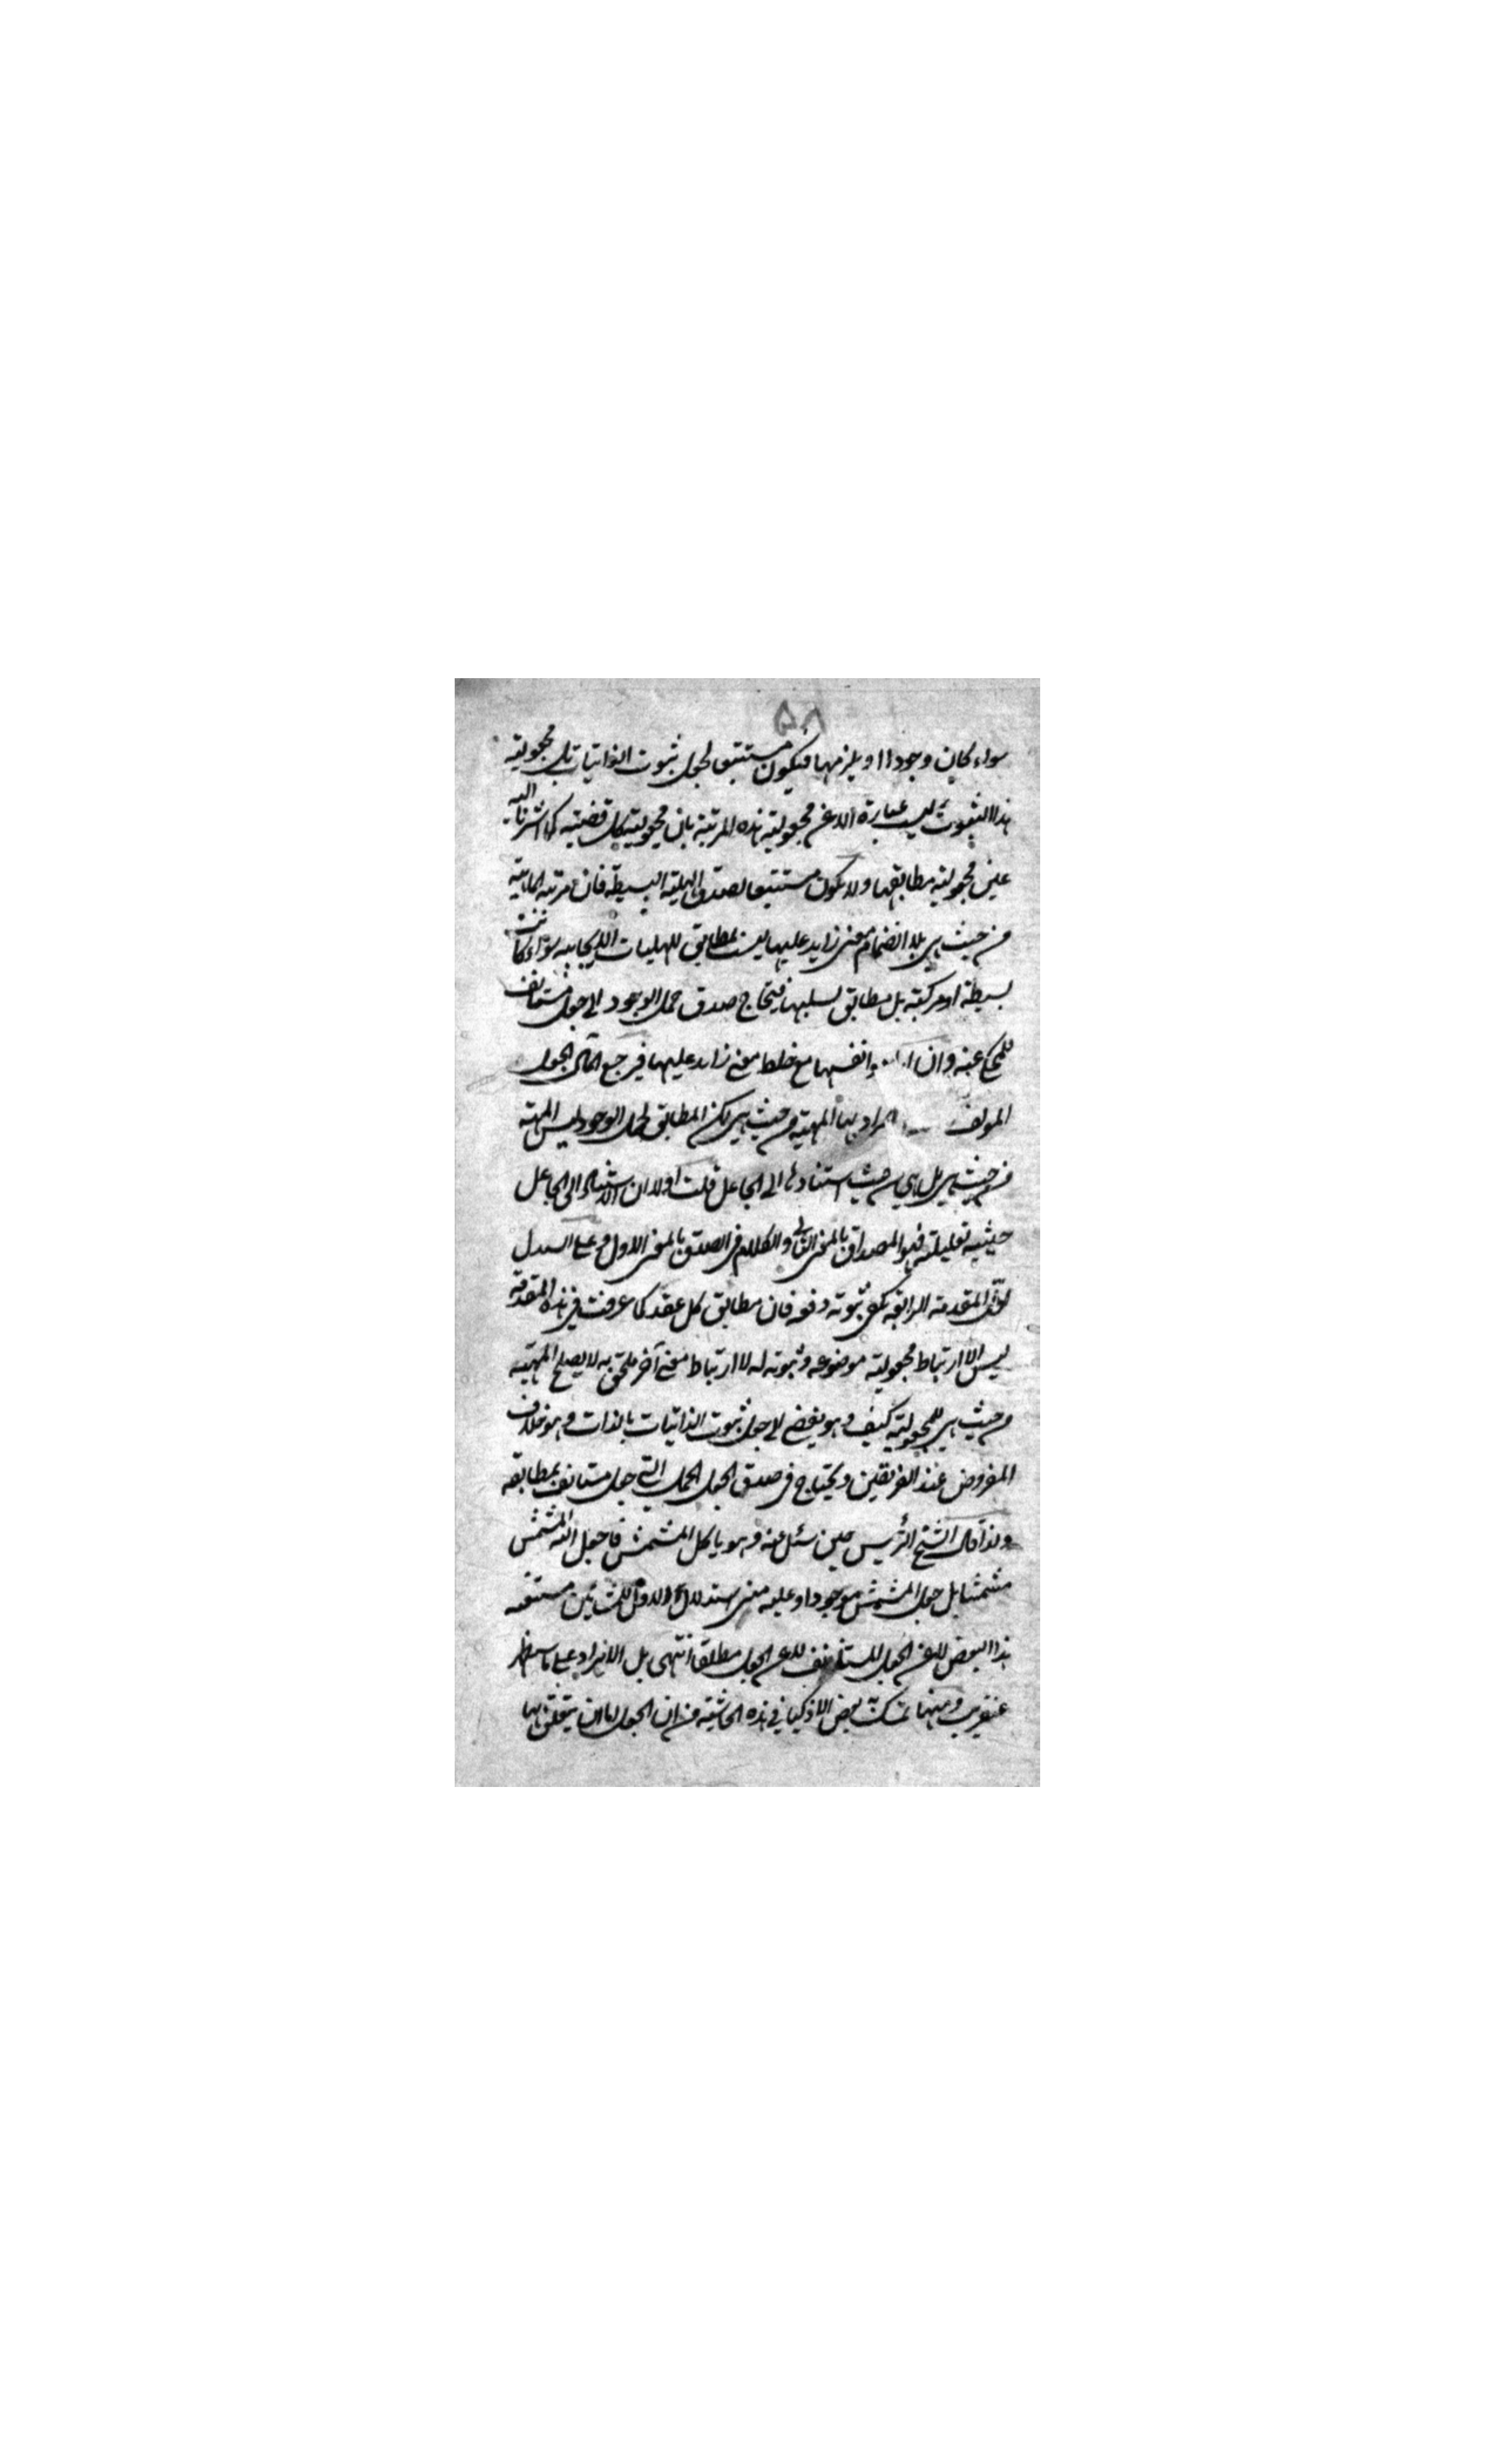 ۵۸
سواء كان وجودا او يلزمها فيكون مستتبعا لجعل ثبوت الذاتيات بل مجعولية
هذا الثبوت ليست عبارة الا عن مجعولية هذه المرتبة بان مجعولية كل قضية كما اشرنا اليه
عين مجعولية مطابقها ولا يكون مستتبعا لصدق الهلية البسيطة فان مرتبة الماهية
من حيث هي بلا انضمام معنى زايد عليها ليست بمطابق للهليات الايجابية سواء كانت
بسيطة او مركبة بل مطابق لسلبها فيحتاج صدق حمل الوجود الى جعل مستانف
للمحكي عنه وان انفسها مع خلط معنى زايد عليها فيرجع الى الجعل
المولف المراد بها المهية من حيث هي لكن المطابق لحمل الوجود ليس المهية
من حيث هي بل هي من حيث استنادها الى الجاعل قلت اولا ان الاستناد الى الجاعل
حيثية تعليلية فهو المصداق بالمعنى الثاني والكلام في الصدق بالمعنى الاول وعلى
المقدمة الرابعة ثبوته دفعه فان مطابق كل عقد كما عرفت في هذه المقدمة
ليس الا ارتباط مجعولية موضوعه وثبوته له لا ارتباط معنى آخر ملحق به لا يصلح المهية
من حيث هي للمجعولية كيف وهو يفضي الى جعل ثبوت الذاتيات بالذات وهو خلاف
المفروض عند الفريقين ويحتاج في صدق الحمل الى جعل مستانف بمطابقه
ولذا قال الشيخ الرئيس حين سئل عنه وهو ياكل المشمش ما جعل الله المشمش
مشمشا بل جعل المشمش موجودا وعليه مبنى استدلال الاول للمشائين
هذا البعض للجعل المستانف للجعل مطلقا انتهى بل الايراد على ما سيظهر
عنقريب ومنها تمسك به بعض الاذكيا في هذه الحاشية من ان الجعل اما ان يتعلق بها